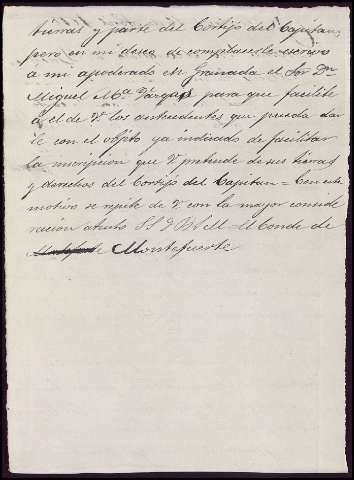 tierras y parte del Cortijo del Capitan,
pero en mi deseo de complacerle escribo
a mi apoderado en Granada el Sor Dn
Miguel Mª Vargas para que facilite
á el de V. los antecedentes que pueda dar
le con el objeto ya indicado de facilitar
la inscripcion que V pretende de sus tierras
y derechos del Cortijo del Capitan = Con este
motivo se repite de V. con la mayor conside
racion atento S S Q B S M El Conde de
Montefuerte